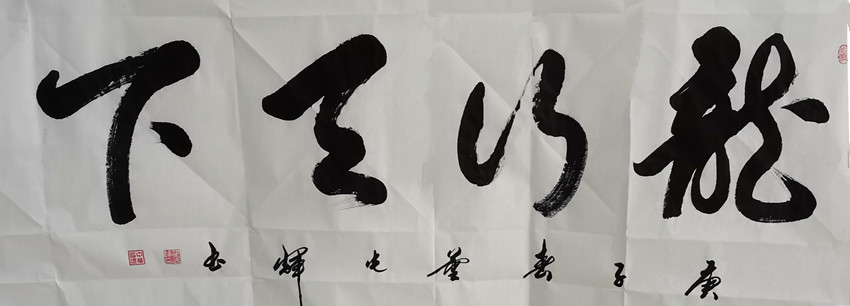 龍行天下
庚子春葉光輝書